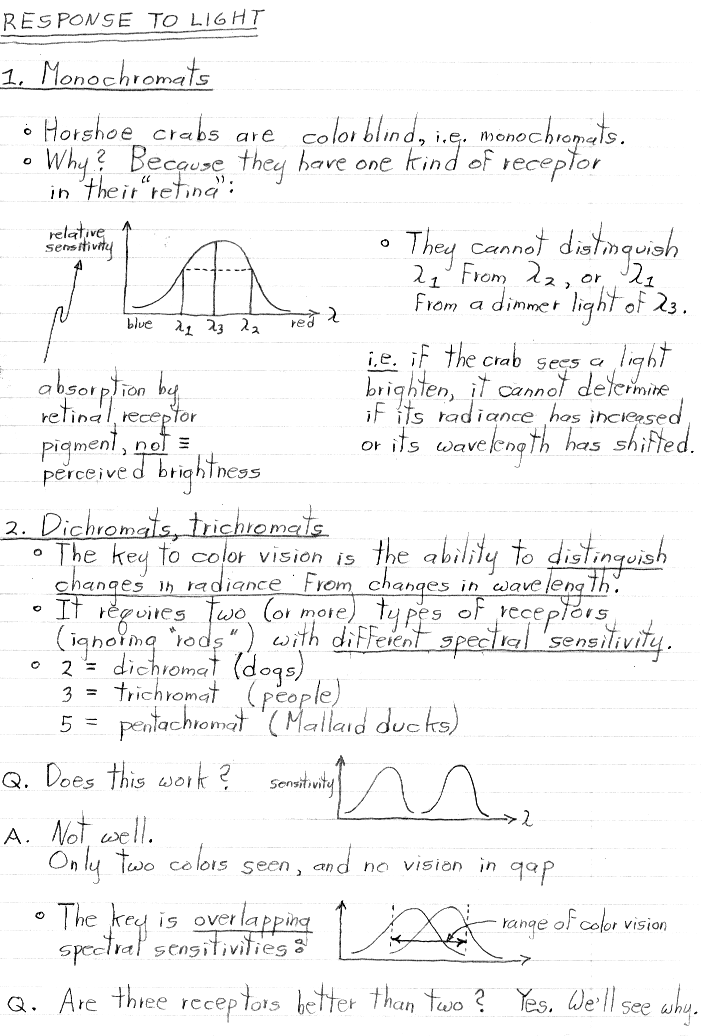 RESPONSE TO LIGHT
1. Monochromats
• Horshoe crabs are colorblind, i.e. monochromats.
• Why? Because they have one kind of receptor
in their "retina":
relative
sensitivity
blue λ1 λ3 λ2 red λ
absorption by
retinal receptor
pigment, not ≡
perceived brightness
• They cannot distinguish
λ1 from λ2, or λ1
from a dimmer light of λ3.
i.e. if the crab sees a light
brighten, it cannot determine
if its radiance has increased
or its wavelength has shifted.
2. Dichromats, trichromats
• The key to color vision is the ability to distinguish
changes in radiance from changes in wavelength.
• It requires two (or more) types of receptors
(ignoring "rods") with different spectral sensitivity.
• 2 = dichromat (dogs)
3 = trichromat (people)
5 = pentachromat (Mallard ducks)
Q. Does this work?
sensitivity
λ
A. Not well.
Only two colors seen, and no vision in gap
• The key is overlapping
spectral sensitivities:
range of color vision
Q. Are three receptors better than two? Yes. We'll see why.